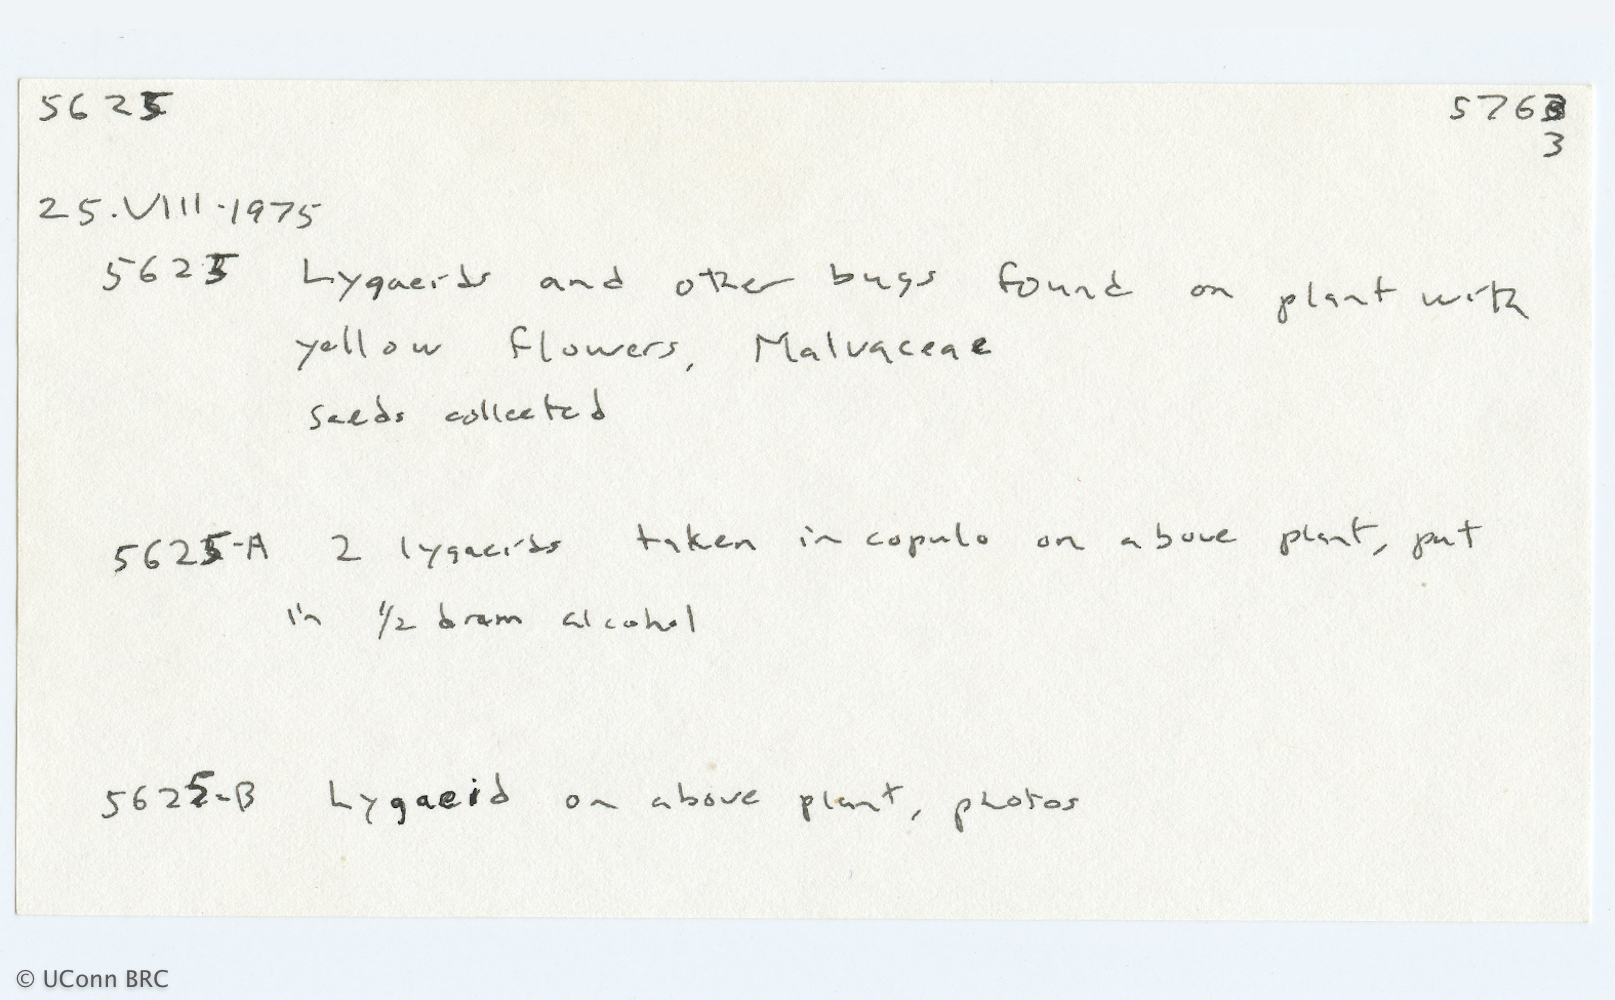 5625 5763
3
25.VIII.1975
5625 Lygaeids and other bugs found on plant with
yellow flowers, Malvaceae
seeds collected
5625-A 2 lygaeids taken in copulo on above plant, put
in 1/2 dram alcohol
5625-B Lygaeid on above plant, photos
© UConn BRC